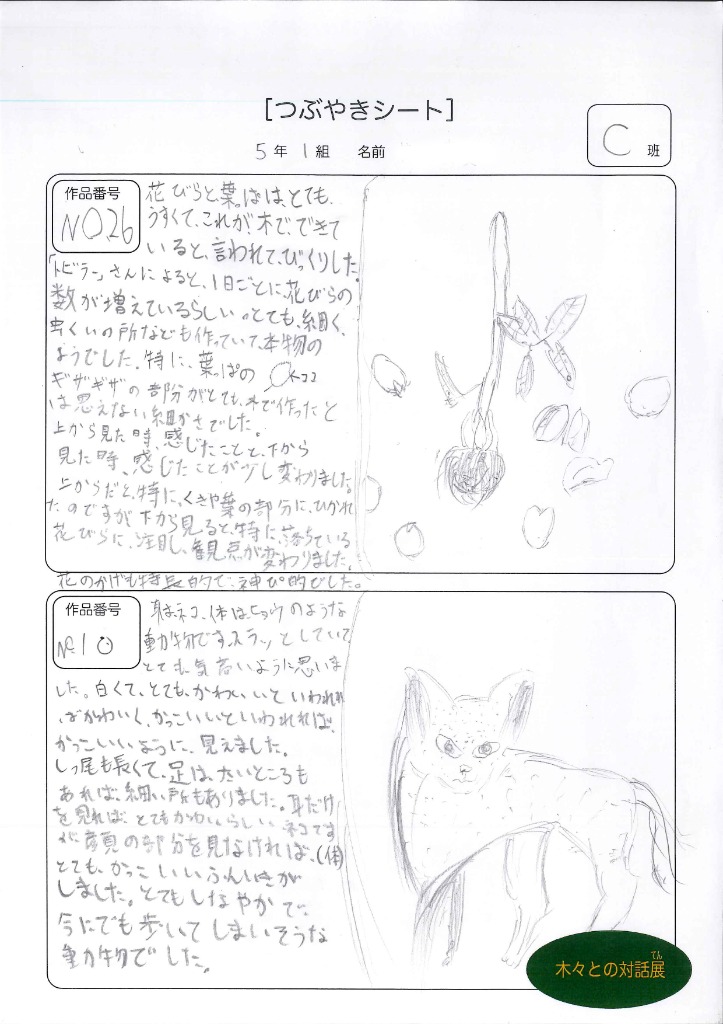 [つぶやきシート]
5年 1組 名前
C 班
作品番号
NO.26
花びらと、葉っぱは、とても、
うすくて、これが木で、できて
いると、言われて、びっくりした。
「トビラー」さんによると、1日ごとに、花びらの
数が増えているらしい。とても、細く、
虫くいの所なども作っていて、本物の
ようでした。特に、葉っぱの ←ココ
ギザギザの部分がとても、木で作ったと
は思えない細かさでした。
上から見た時、感じたことと、下から
見た時、感じたことが少し変わりました。
上からだと、特に、くきや葉の部分に、ひかれ
たのですが下から見ると、特に、落ちている
花びらに、注目し、観点が変わりました。
花のかげも特長的で、神ぴ的でした。
作品番号
No.10
身はネコ、体は、ヒョウのような
動物です。スラッとしていて
とても、気高いように思いま
した。白くて、とても、かわいいといわれれ
ばかわいく、かっこいいといわれれば、
かっこいいように、見えました。
しっ尾も長くて、足は、太いところも
あれば、細い所もありました。耳だけ
を見れば、とてもかわいらしいネコです
が顔の部分を見なければ、(体)
とても、かっこいいふんいきが
しました。とてもしなやかで、
今にでも歩いてしまいそうな
動物でした。
木々との対話展
てん